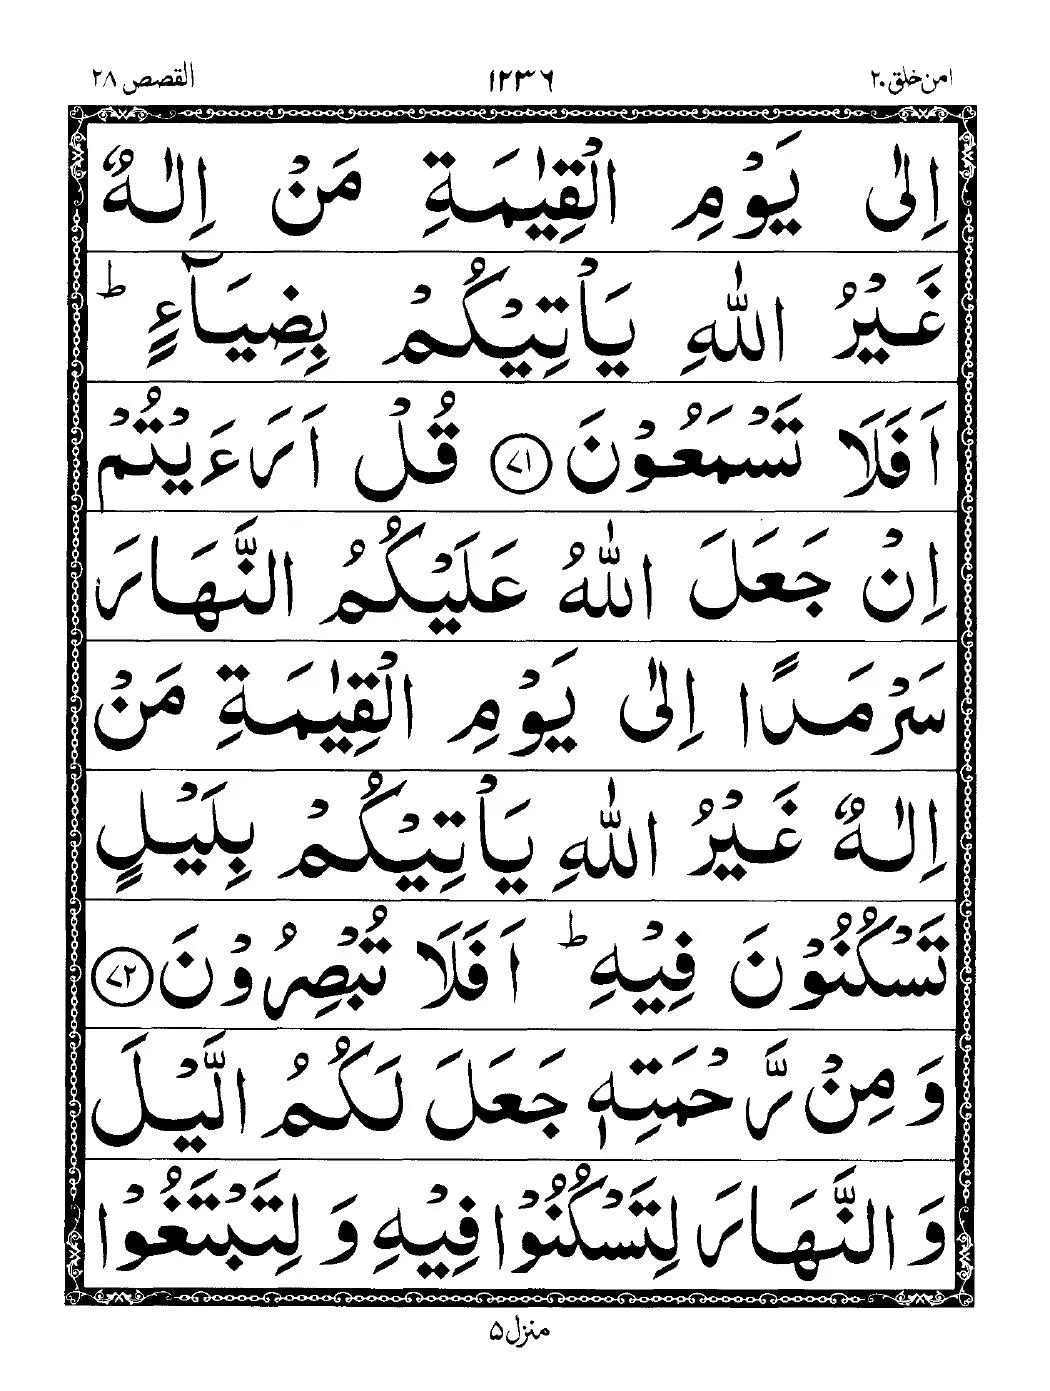 امن خلق ۲۰ ۱۲۳۶ القصص ۲۸
اِلٰى يَوْمِ الْقِيٰمَةِ مَنْ اِلٰهٌ
غَيْرُ اللّٰهِ يَاْتِيْكُمْ بِضِيَآءٍ ؕ
اَفَلَا تَسْمَعُوْنَ ﴿۷۱﴾ قُلْ اَرَءَيْتُمْ
اِنْ جَعَلَ اللّٰهُ عَلَيْكُمُ النَّهَارَ
سَرْمَدًا اِلٰى يَوْمِ الْقِيٰمَةِ مَنْ
اِلٰهٌ غَيْرُ اللّٰهِ يَاْتِيْكُمْ بِلَيْلٍ
تَسْكُنُوْنَ فِيْهِ ؕ اَفَلَا تُبْصِرُوْنَ ﴿۷۲﴾
وَ مِنْ رَّحْمَتِهٖ جَعَلَ لَكُمُ الَّيْلَ
وَ النَّهَارَ لِتَسْكُنُوْا فِيْهِ وَ لِتَبْتَغُوْا
منزل ۵